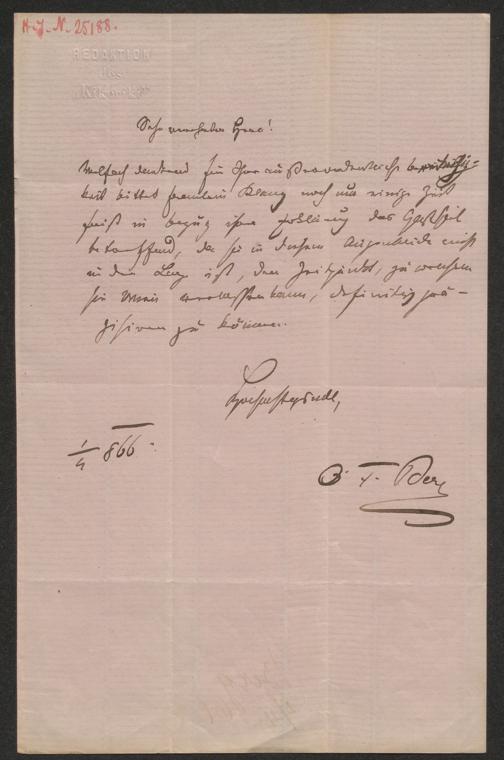 H.I.N. 25188.
REDAKTION
des
„Kikeriki“
Sehr verehrter Herr!
Vielfach dankend für Ihre außerordentliche bereitwillig-
keit bittet Fräulein Klang noch um einige Zeit
Frist in bezug ihrer Erklärung das Gastspiel
betreffend, da sie in diesem Augenblicke nicht
in der Lage ist, den Zeitpunkt, zu welchem
sie Wien verlassen kann, definitiv prä-
zisiren zu können.
Hochachtungsvoll,
1/4 866.
O. F. Berg